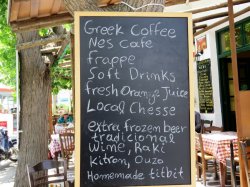 Greek Coffee
Nes Cafe
frappe
Soft Drinks
fresh Orange Juice
Local Chesse
extra frozen beer
tradicional
Wime, Raki
Kitron, Ouzo
Homemade titbit